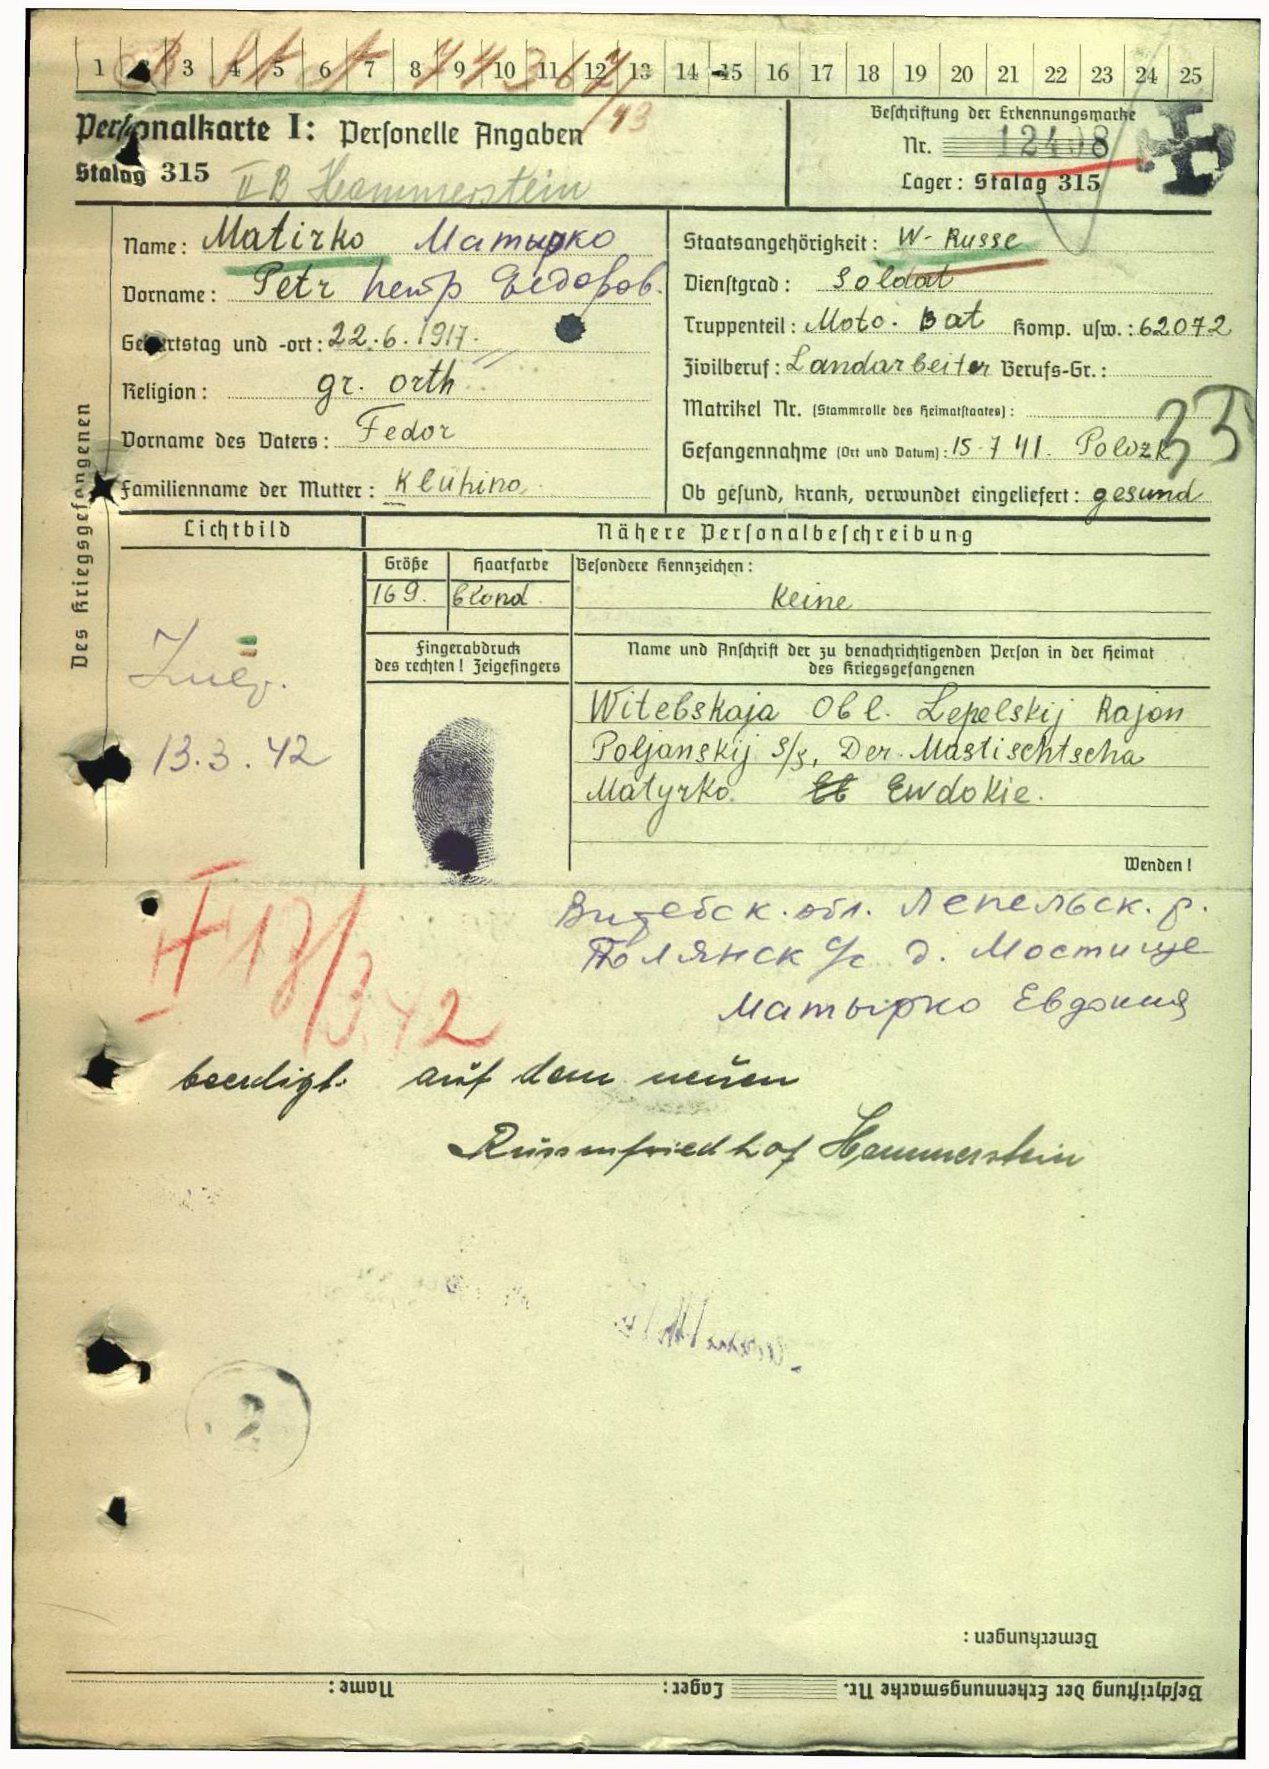 1 2 3 4 5 6 7 8 9 10 11 12 13 14 15 16 17 18 19 20 21 22 23 24 25
Personalkarte I: Personelle Angaben
Stalag 315 II B Hammerstein
Beschriftung der Erkennungsmarke
Nr. 12408
Lager: Stalag 315
Des Kriegsgefangenen
Name: Matirko Матырко
Vorname: Petr Петр Федоров.
Geburtstag und -ort: 22.6.1917.
Religion: gr. orth
Vorname des Vaters: Fedor
Familienname der Mutter: Kluhino
Staatsangehörigkeit: W-Russe
Dienstgrad: Soldat
Truppenteil: Moto. Bat Komp. usw.: 62072
Zivilberuf: Landarbeiter Berufs-Gr.:
Matrikel Nr. (Stammrolle des Heimatstaates):
Gefangennahme (Ort und Datum): 15.7 41. Polozk
33
Ob gesund, krank, verwundet eingeliefert: gesund
Lichtbild
Nähere Personalbeschreibung
Größe Haarfarbe Besondere Kennzeichen:
169. blond. Keine
Fingerabdruck
des rechten! Zeigefingers
Name und Anschrift der zu benachrichtigenden Person in der Heimat
des Kriegsgefangenen
Witebskaja Obl. Lepelskij Rajon
Poljanskij S/s, Der. Mastischtscha
Matyrko. Ewdokie.
13.3.42
Wenden!
Витебск. обл. Лепельск. р.
Полянск с/с д. Мостище
Матырко Евдокия
13/3.42
beerdigt. auf dem neuen
Russenfriedhof Hammerstein
2
Bemerkungen:
Beschriftung der Erkennungsmarke Nr. Lager: Name: